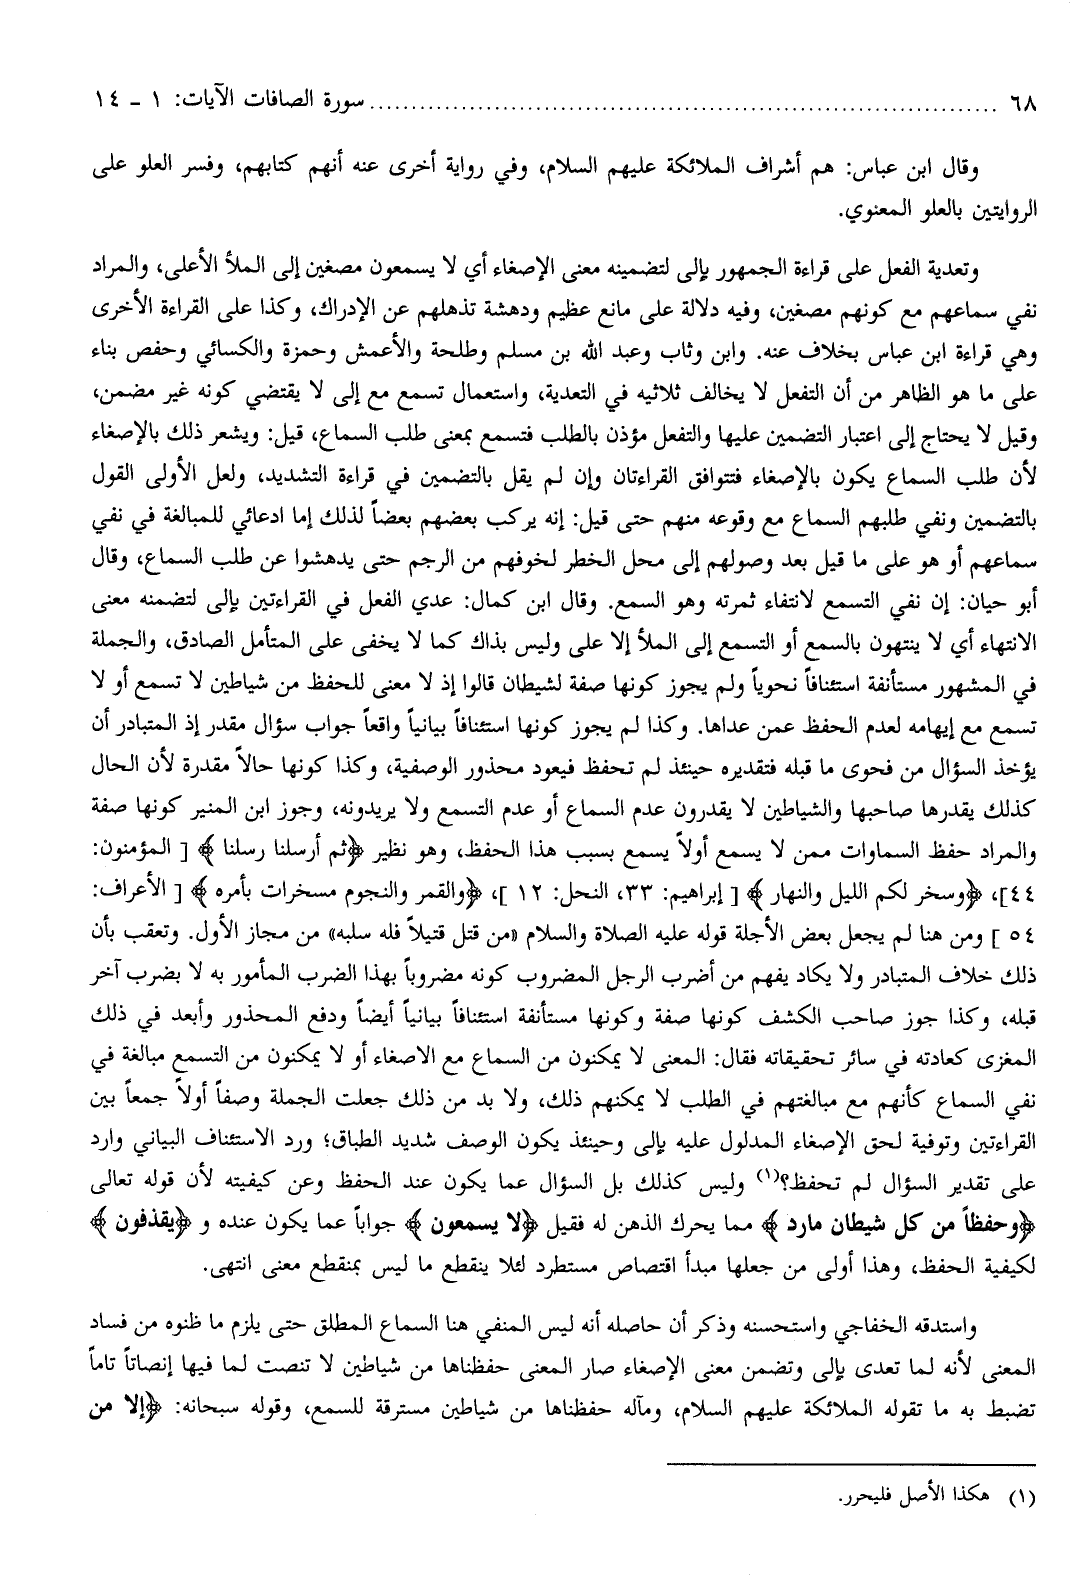 ٦٨ ........................................................ سورة الصافات الآيات: ١ - ١٤
وقال ابن عباس: هم أشراف الملائكة عليهم السلام، وفي رواية أخرى عنه أنهم كتابهم، وفسر العلو على
الروايتين بالعلو المعنوي.
وتعدية الفعل على قراءة الجمهور بإلى لتضمينه معنى الإصغاء أي لا يسمعون مصغين إلى الملأ الأعلى، والمراد
نفي سماعهم مع كونهم مصغين، وفيه دلالة على مانع عظيم ودهشة تذهلهم عن الإدراك، وكذا على القراءة الأخرى
وهي قراءة ابن عباس بخلاف عنه. وابن وثاب وعبد الله بن مسلم وطلحة والأعمش وحمزة والكسائي وحفص بناء
على ما هو الظاهر من أن التفعل لا يخالف ثلاثيه في التعدية، واستعمال تسمع مع إلى لا يقتضي كونه غير مضمن،
وقيل لا يحتاج إلى اعتبار التضمين عليها والتفعل مؤذن بالطلب فتسمع بمعنى طلب السماع، قيل: ويشعر ذلك بالإصغاء
لأن طلب السماع يكون بالإصغاء فتتوافق القراءتان وإن لم يقل بالتضمين في قراءة التشديد، ولعل الأولى القول
بالتضمين ونفي طلبهم السماع مع وقوعه منهم حتى قيل: إنه يركب بعضهم بعضاً لذلك إما ادعائي للمبالغة في نفي
سماعهم أو هو على ما قيل بعد وصولهم إلى محل الخطر لخوفهم من الرجم حتى يدهشوا عن طلب السماع، وقال
أبو حيان: إن نفي التسمع لانتفاء ثمرته وهو السمع. وقال ابن كمال: عدي الفعل في القراءتين بإلى لتضمنه معنى
الانتهاء أي لا ينتهون بالسمع أو التسمع إلى الملأ إلا على وليس بذاك كما لا يخفى على المتأمل الصادق، والجملة
في المشهور مستأنفة استئنافاً نحوياً ولم يجوز كونها صفة لشيطان قالوا إذ لا معنى للحفظ من شياطين لا تسمع أو لا
تسمع مع إيهامه لعدم الحفظ عمن عداها. وكذا لم يجوز كونها استئنافاً بيانياً واقعاً جواب سؤال مقدر إذ المتبادر أن
يؤخذ السؤال من فحوى ما قبله فتقديره حينئذ لم تحفظ فيعود محذور الوصفية، وكذا كونها حالاً مقدرة لأن الحال
كذلك يقدرها صاحبها والشياطين لا يقدرون عدم السماع أو عدم التسمع ولا يريدونه، وجوز ابن المنير كونها صفة
والمراد حفظ السماوات ممن لا يسمع أولاً يسمع بسبب هذا الحفظ، وهو نظير ﴿ثم أرسلنا رسلنا﴾ [ المؤمنون:
٤٤]، ﴿وسخر لكم الليل والنهار﴾ [ إبراهيم: ٣٣، النحل: ١٢ ]، ﴿والقمر والنجوم مسخرات بأمره﴾ [ الأعراف:
٥٤ ] ومن هنا لم يجعل بعض الأجلة قوله عليه الصلاة والسلام «من قتل قتيلاً فله سلبه» من مجاز الأول. وتعقب بأن
ذلك خلاف المتبادر ولا يكاد يفهم من أضرب الرجل المضروب كونه مضروباً بهذا الضرب المأمور به لا بضرب آخر
قبله، وكذا جوز صاحب الكشف كونها صفة وكونها مستأنفة استئنافاً بيانياً أيضاً ودفع المحذور وأبعد في ذلك
المغزى كعادته في سائر تحقيقاته فقال: المعنى لا يمكنون من السماع مع الاصغاء أو لا يمكنون من التسمع مبالغة في
نفي السماع كأنهم مع مبالغتهم في الطلب لا يمكنهم ذلك، ولا بد من ذلك جعلت الجملة وصفاً أولاً جمعاً بين
القراءتين وتوفية لحق الإصغاء المدلول عليه بإلى وحينئذ يكون الوصف شديد الطباق؛ ورد الاستئناف البياني وارد
على تقدير السؤال لم تحفظ؟(١) وليس كذلك بل السؤال عما يكون عند الحفظ وعن كيفيته لأن قوله تعالى
﴿وحفظاً من كل شيطان مارد﴾ مما يحرك الذهن له فقيل ﴿لا يسمعون﴾ جواباً عما يكون عنده و ﴿يقذفون﴾
لكيفية الحفظ، وهذا أولى من جعلها مبدأ اقتصاص مستطرد لئلا ينقطع ما ليس بمنقطع معنى انتهى.
واستدقه الخفاجي واستحسنه وذكر أن حاصله أنه ليس المنفي هنا السماع المطلق حتى يلزم ما ظنوه من فساد
المعنى لأنه لما تعدى بإلى وتضمن معنى الإصغاء صار المعنى حفظناها من شياطين لا تنصت لما فيها إنصاتاً تاماً
تضبط به ما تقوله الملائكة عليهم السلام، ومآله حفظناها من شياطين مسترقة للسمع، وقوله سبحانه: ﴿إلا من
(١) هكذا الأصل فليحرر.